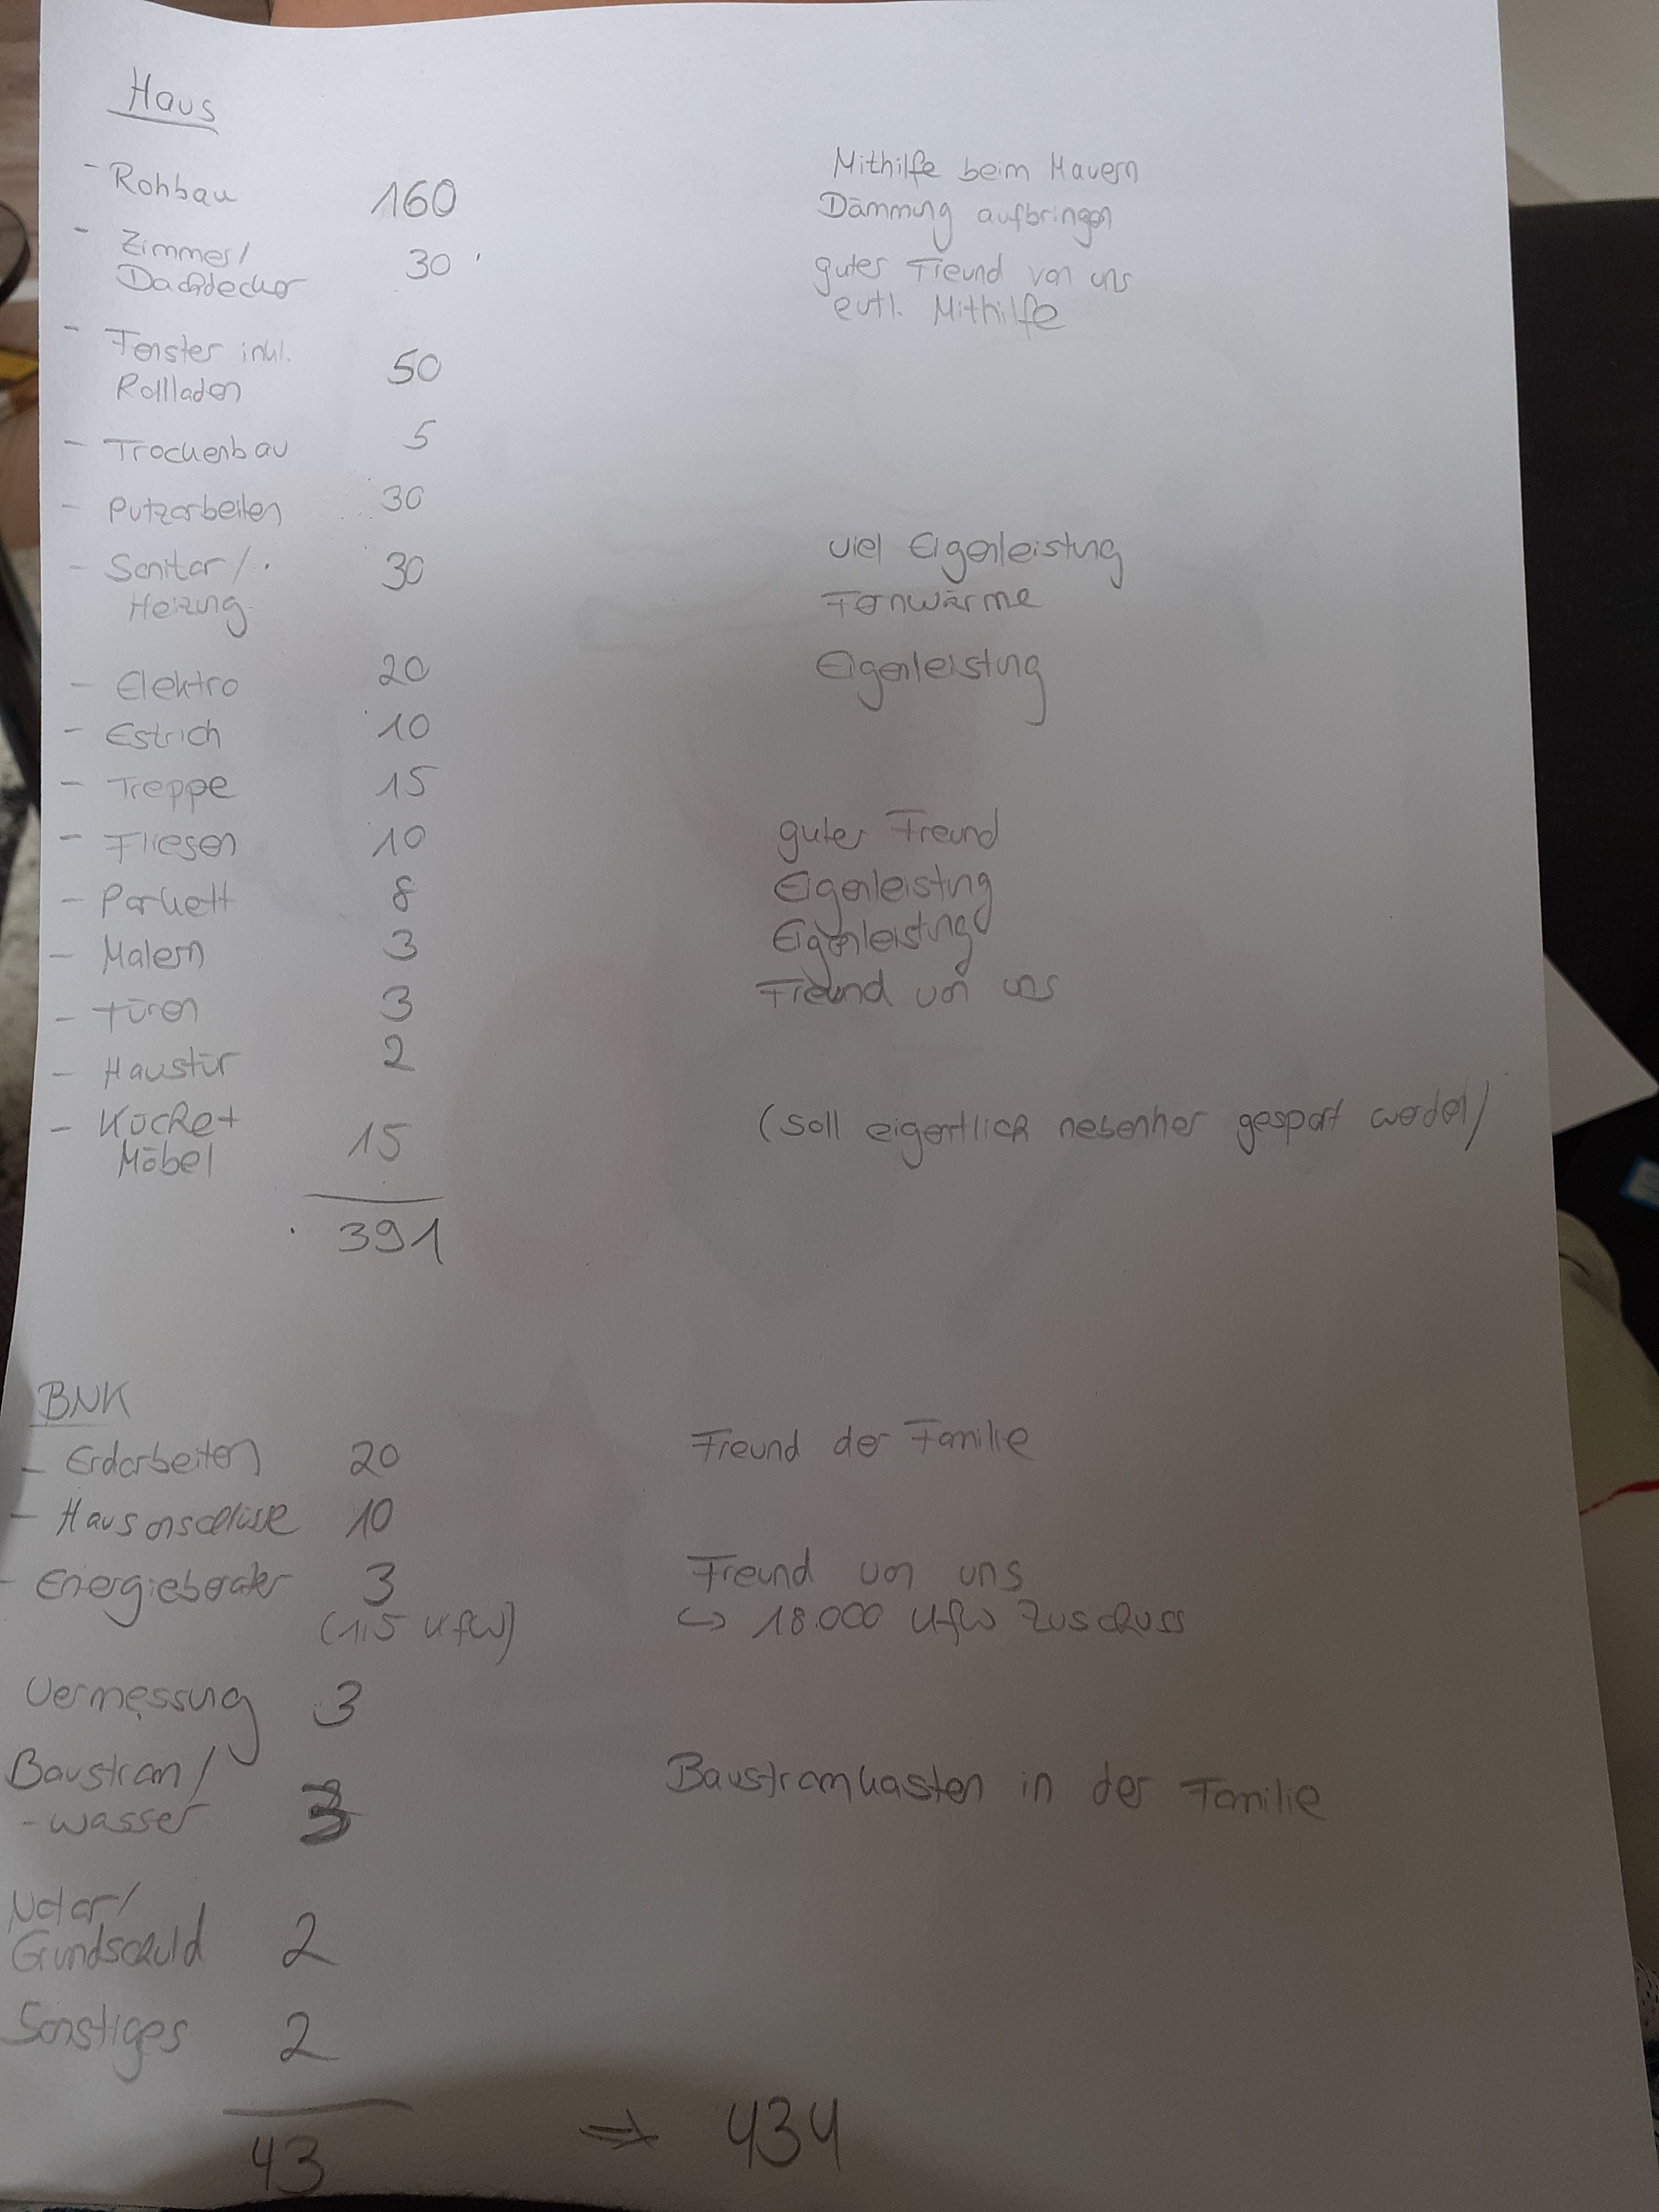 Haus
- Rohbau 160 Mithilfe beim Mauern
Dämmung aufbringen
- Zimmer/ 30 guter Freund von uns
Dachdecker evtl. Mithilfe
- Fenster inkl. 50
Rollladen
- Trockenbau 5
- Putzarbeiten 30
- Sanitär/ 30 viel Eigenleistung
Heizung Fernwärme
- Elektro 20 Eigenleistung
- Estrich 10
- Treppe 15
- Fliesen 10 guter Freund
- Parkett 8 Eigenleistung
- Malern 3 Eigenleistung
- Türen 3 Freund von uns
- Haustür 2
- Küche + 15 (soll eigentlich nebenher gespart werden)
Möbel
391
BNK
- Erdarbeiten 20 Freund der Familie
- Hausanschlüsse 10
- Energieberater 3 Freund von uns
(1,5 KfW) ↪ 18.000 KfW Zuschuss
Vermessung 3
Baustrom/ 3 Baustromkasten in der Familie
-wasser
Notar/ 2
Grundschuld
Sonstiges 2
43 ⇒ 434